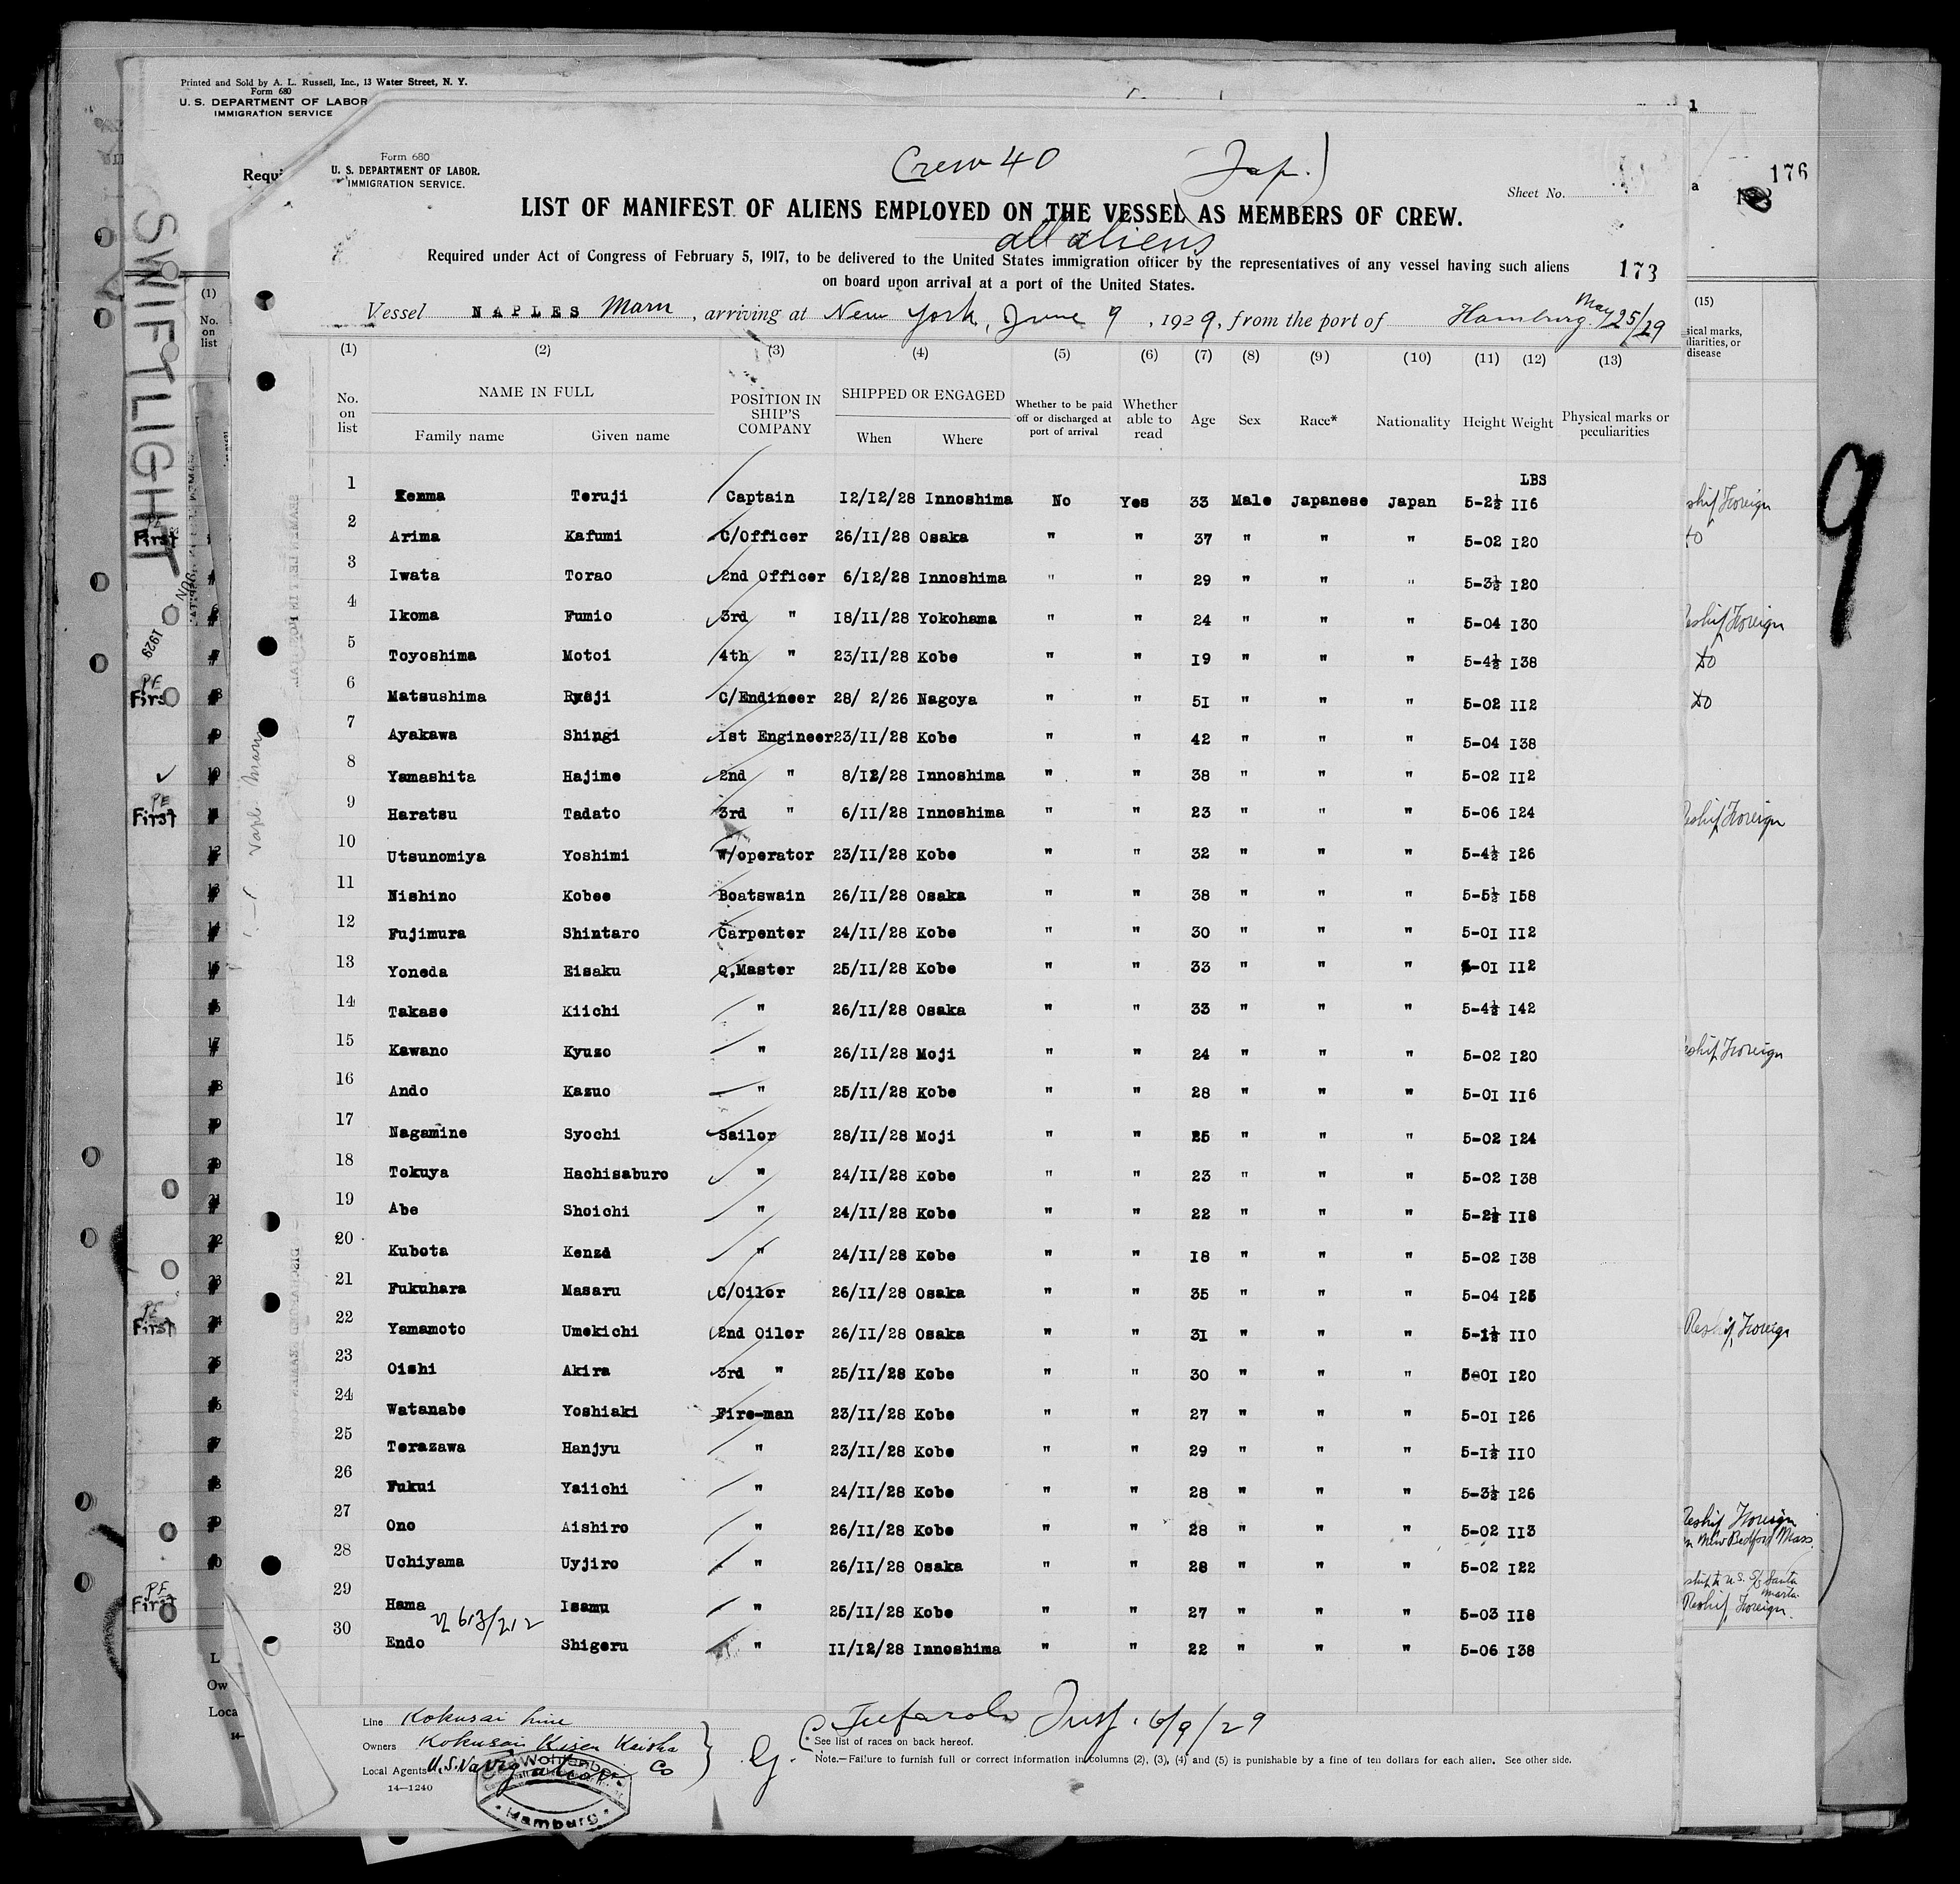 Printed and Sold by A. L. Russell, Inc., 13 Water Street, N. Y.
Form 680
U. S. DEPARTMENT OF LABOR
IMMIGRATION SERVICE
1
176
SWIFTLIGHT
Form 680
U. S. DEPARTMENT OF LABOR.
IMMIGRATION SERVICE.
Crew 40 Jap.)
Sheet No.
LIST OF MANIFEST OF ALIENS EMPLOYED ON THE VESSEL AS MEMBERS OF CREW.
all aliens
Required under Act of Congress of February 5, 1917, to be delivered to the United States immigration officer by the representatives of any vessel having such aliens
on board upon arrival at a port of the United States.
173
Vessel NAPLES Maru, arriving at New York, June 9, 1929, from the port of Hamburg. May 25/29
(1) (2) (3) (4) (5) (6) (7) (8) (9) (10) (11) (12) (13)
No. on list NAME IN FULL Family name Given name POSITION IN SHIP'S COMPANY SHIPPED OR ENGAGED When Where Whether to be paid off or discharged at port of arrival Whether able to read Age Sex Race* Nationality Height Weight Physical marks or peculiarities
LBS
1 Kemma Teruji Captain I2/I2/28 Innoshima No Yes 33 Male Japanese Japan 5-2½ II6
2 Arima Kafumi C/Officer 26/II/28 Osaka " " 37 " " " 5-02 I20
3 Iwata Torao 2nd Officer 6/I2/28 Innoshima " " 29 " " " 5-3½ I20
4 Ikoma Fumio 3rd " I8/II/28 Yokohama " " 24 " " " 5-04 I30
5 Toyoshima Motoi 4th " 23/II/28 Kobe " " I9 " " " 5-4½ I38
6 Matsushima Ryuji C/Endineer 28/ 2/26 Nagoya " " 5I " " " 5-02 II2
7 Ayakawa Shingi Ist Engineer 23/II/28 Kobe " " 42 " " " 5-04 I38
8 Yamashita Hajime 2nd " 8/I2/28 Innoshima " " 38 " " " 5-02 II2
9 Haratsu Tadato 3rd " 6/II/28 Innoshima " " 23 " " " 5-06 I24
10 Utsunomiya Yoshimi W/operator 23/II/28 Kobe " " 32 " " " 5-4½ I26
11 Nishino Kobee Boatswain 26/II/28 Osaka " " 38 " " " 5-5½ I58
12 Fujimura Shintaro Carpenter 24/II/28 Kobe " " 30 " " " 5-0I II2
13 Yoneda Eisaku Q,Master 25/II/28 Kobe " " 33 " " " 5-0I II2
14 Takase Kiichi " 26/II/28 Osaka " " 33 " " " 5-4½ I42
15 Kawano Kyuzo " 26/II/28 Moji " " 24 " " " 5-02 I20
16 Ando Kazuo " 25/II/28 Kobe " " 28 " " " 5-0I II6
17 Nagamine Syochi Sailor 28/II/28 Moji " " 25 " " " 5-02 I24
18 Tokuya Hachisaburo " 24/II/28 Kobe " " 23 " " " 5-02 I38
19 Abe Shoichi " 24/II/28 Kobe " " 22 " " " 5-2½ II8
20 Kubota Kenzd " 24/II/28 Kobe " " I8 " " " 5-02 I38
21 Fukuhara Masaru C/Oiler 26/II/28 Osaka " " 35 " " " 5-04 I25
22 Yamamoto Umekichi 2nd Oiler 26/II/28 Osaka " " 3I " " " 5-1½ II0
23 Oishi Akira 3rd " 25/II/28 Kobe " " 30 " " " 5-0I I20
24 Watanabe Yoshiaki Fire-man 23/II/28 Kobe " " 27 " " " 5-0I I26
25 Terazawa Hanjyu " 23/II/28 Kobe " " 29 " " " 5-I½ II0
26 Fukui Yaiichi " 24/II/28 Kobe " " 28 " " " 5-3½ I26
27 Ono Aishiro " 26/II/28 Kobe " " 28 " " " 5-02 II3
28 Uchiyama Uyjiro " 26/II/28 Osaka " " 28 " " " 5-02 I22
29 Hama Isamu " 25/II/28 Kobe " " 27 " " " 5-03 II8
613/212
30 Endo Shigeru " II/I2/28 Innoshima " " 22 " " " 5-06 I38
Line Kokusai Line
Owners Kokusai Kisen Kaisha
Local Agents U.S. Navigation Co
14—1240
Hamburg
6/9/29
* See list of races on back hereof.
Note.—Failure to furnish full or correct information in columns (2), (3), (4) and (5) is punishable by a fine of ten dollars for each alien. See other side.
(15)
9
Reship Foreign
do
Reship Foreign
do
do
Reship Foreign
Reship Foreign
Reship Foreign
Reship Foreign
New Bedford Mass.
Reship Foreign.
PE
First
1929
PE
First
PE
First
PE
First
PE
First